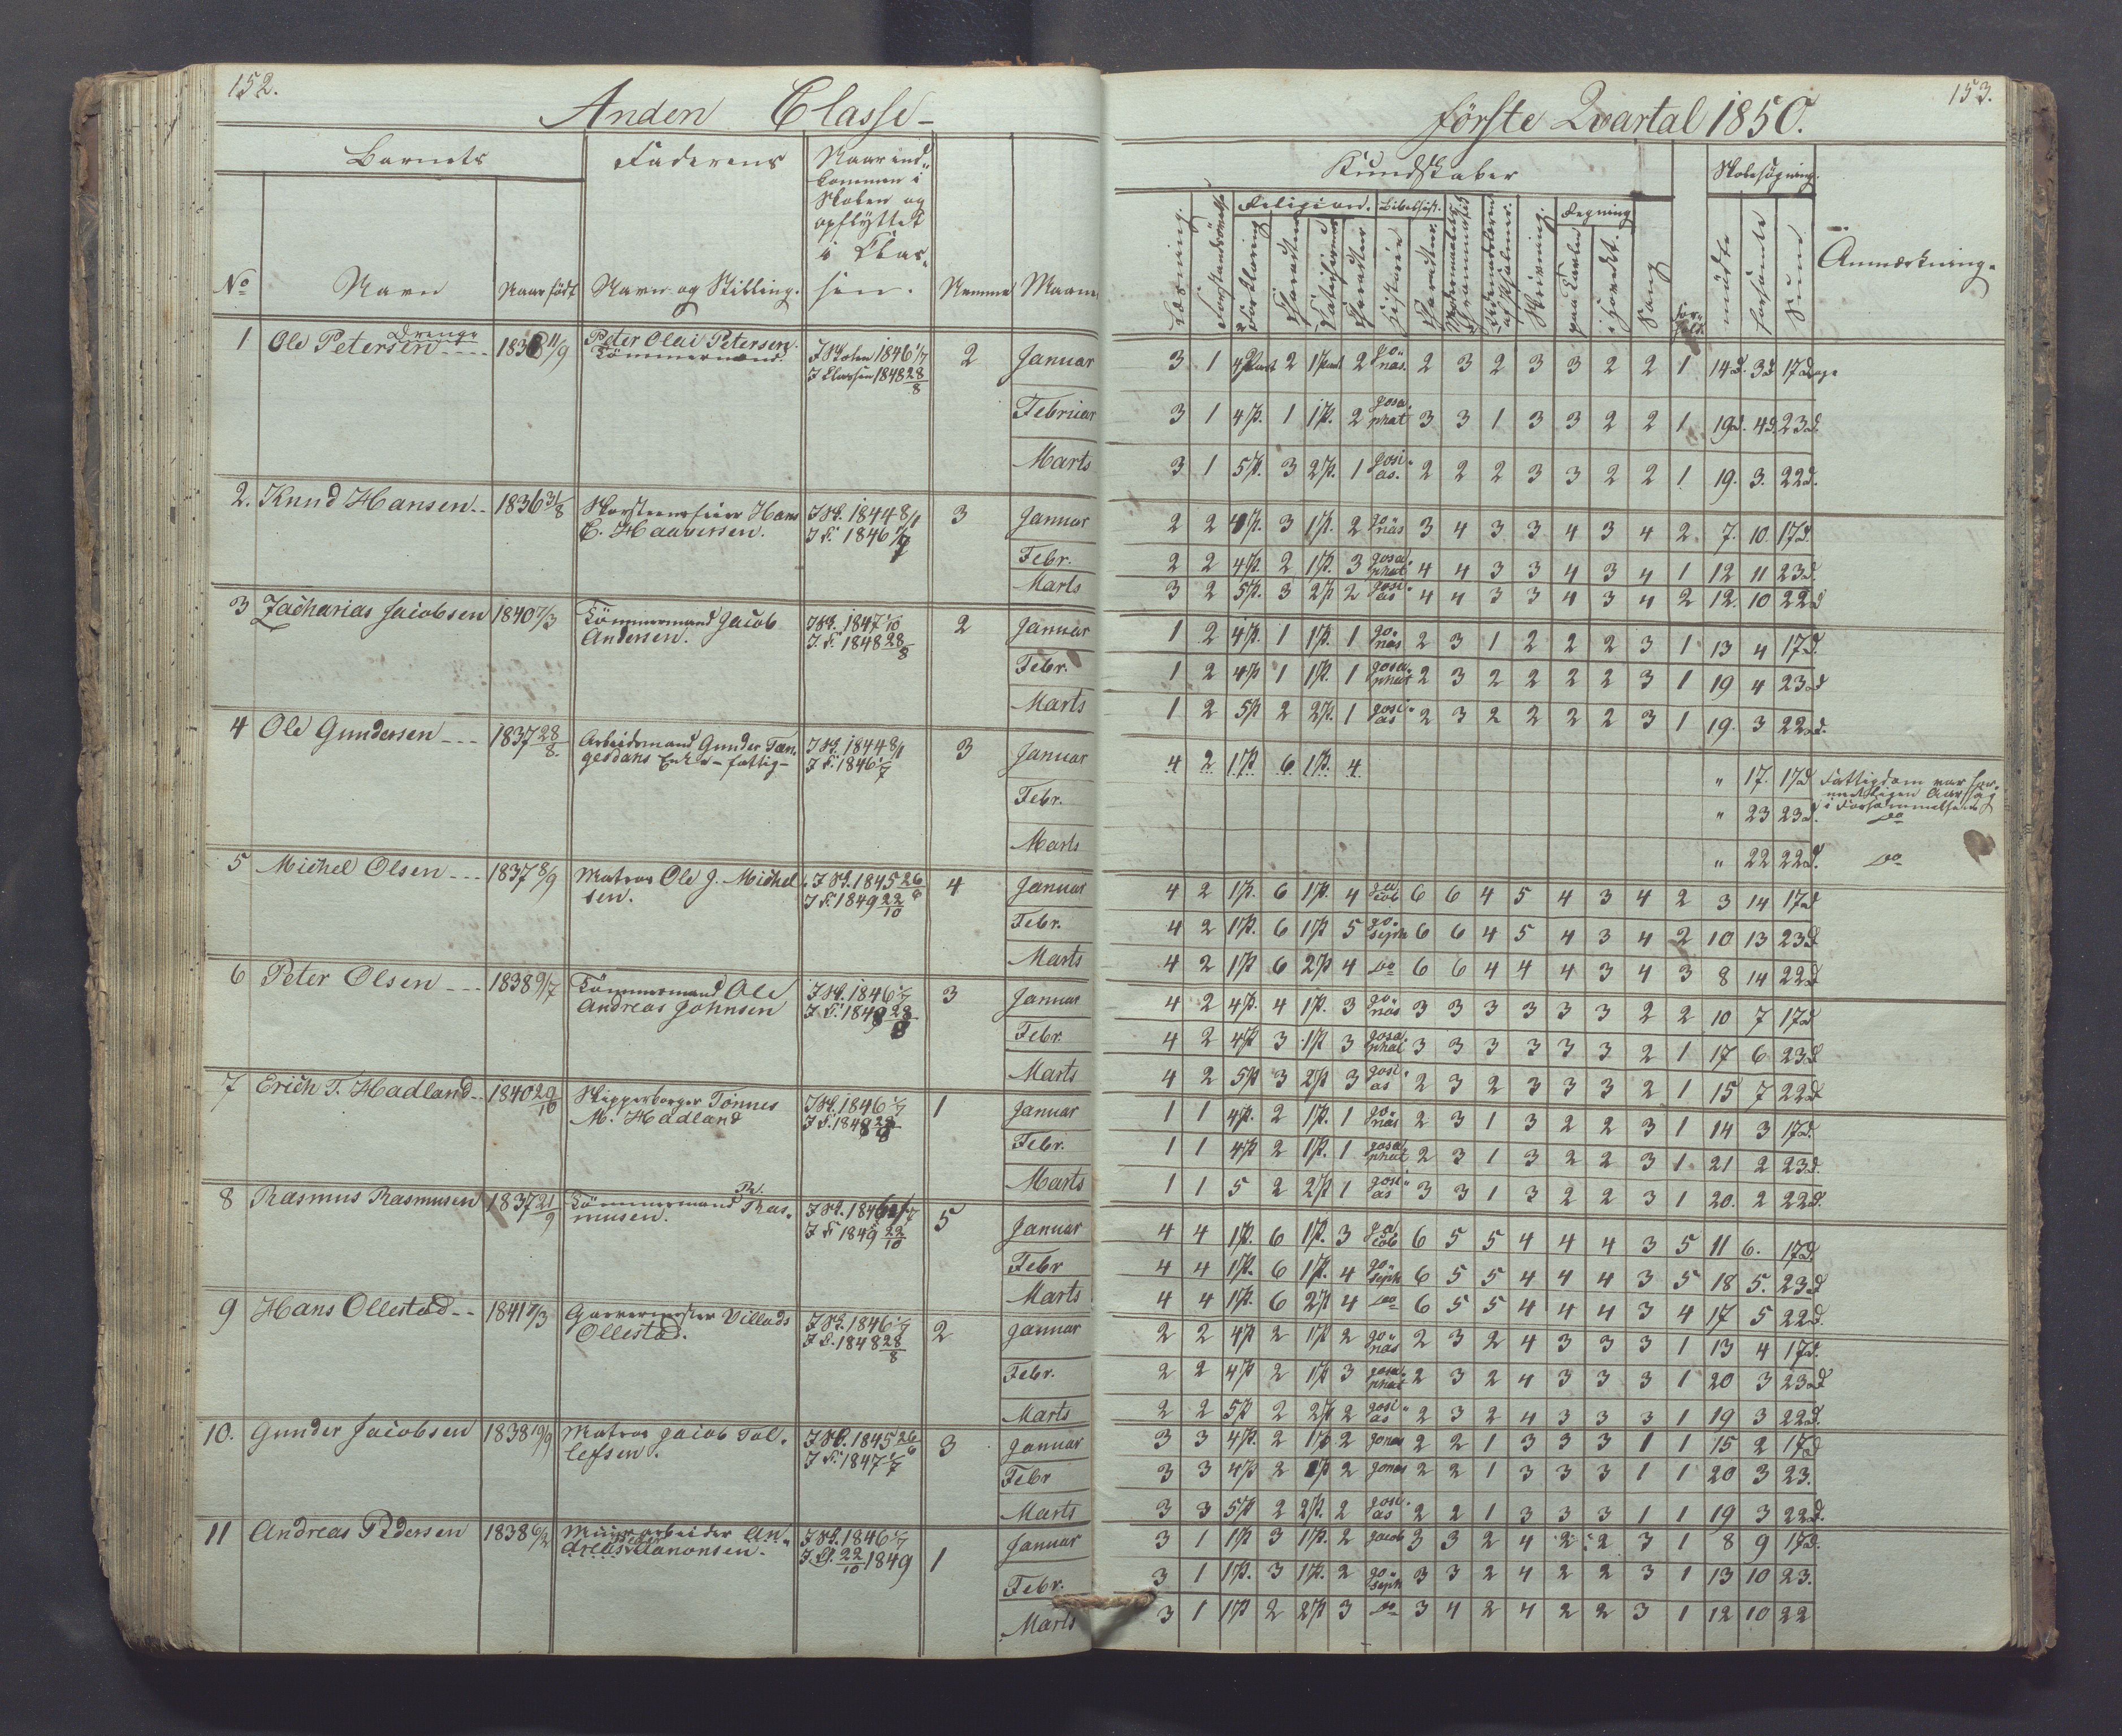 152.
Anden Classe-
Barnets
Faderens
Naar ind-
kommen i
Skolen og
opflyttet
i Clas-
sen.
No
Navn
Naar født
Navn og Stilling.
Nemme
Maaned
Drenge
1 Ole Petersen 1836 11/9 Peter Olai Petersen I Skolen 1846 1/7 2 Januar
Tømmermand I Classen 1848 28/8
Februar
Marts
2. Knud Hansen 1836 31/8 Skorsteensfeier Hans I Sk. 1844 8/1 3 Januar
C. Haaversen. I C. 1846 1/7
Febr.
Marts
3 Zacharias Jacobsen 1840 7/3 Tømmermand Jacob I Sk. 1847 1/10 2 Januar
Andersen. I C. 1848 28/8
Febr.
Marts
4 Ole Gundersen 1837 28/8 Arbeidsmand Gunder Tan- I Sk. 1844 8/1 3 Januar
gesdans Enke - fattig- I C. 1846 1/7
Febr.
Marts
5 Michel Olsen 1837 8/9 Matros Ole J. Michel- I Sk. 1845 26/6 4 Januar
sen. I C. 1849 22/10
Febr.
Marts
6 Peter Olsen 1838 9/7 Tømmermand Ole I Sk. 1846 1/7 3 Januar
Andreas Johnsen I C. 1848 28/8
Febr.
Marts
7 Erich T. Hadland 1840 29/10 Skipperborger Tönnes I Sk. 1846 1/7 1 Januar
M. Hadland I C. 1848 28/8
Febr.
Marts
8 Rasmus Rasmusen 1837 21/9 Tømmermand R. Ras- I Sk. 1846 1/7 5 Januar
musen. I C 1849 22/10
Febr
Marts
9 Hans Ollestad 1841 7/3 Garvermester Villads I Sk. 1846 1/7 2 Januar
Ollestad. I C. 1848 28/8
Febr.
Marts
10. Gunder Jacobsen 1838 19/9 Matros Jacob Tol- I Sk. 1845 26/6 3 Januar
lefsen. I C. 1847 1/7
Febr
Marts
11 Andreas Pedersen 1838 6/2 Muurarbeider An- I Sk. 1846 1/7 1 Januar
dreas Aanonsen. I Cl. 22/10 1849
Febr.
Marts
153.
förste Qvartal 1850.
Kundskaber
Skolesøgning.
Religion. Bibelhist. Regning
Læsning.
Forklaring
Karakter
Historie
Skrivning.
paa Tavlen
i Hovedet.
Sang
For-
hold.
mødte
forsømte
Sum
Anmærkning.
3 1 4 Part 2 1 Part 2 Jo-nas. 2 3 2 3 3 2 2 1 14d. 3d 17 Dage
3 1 4 P. 1 1 P. 2 Josa-phat 3 3 1 3 3 2 2 1 19d. 4d. 23d.
3 1 5 P. 3 2 P. 1 Josi-as. 2 2 2 3 3 2 2 1 19. 3. 22d.
2 2 4 P. 3 1 P. 2 Jo-nas 3 4 3 3 4 3 4 2 7. 10. 17d.
2 2 4 P. 2 1 P. 3 Josa-phat 4 4 3 3 4 3 4 1 12 11 23d.
3 2 5 P. 3 2 P 2 Josi-as 4 4 3 3 4 3 4 2 12. 10 22d
1 2 4 P. 1 1 P. 1 Jo-nas 2 3 1 2 2 2 3 1 13 4 17d.
1 2 4 P 1 1 P. 1 Josa-phat 2 3 2 2 2 2 3 1 19 4 23d
1 2 5 P 2 2 P. 1 Josi-as 2 3 2 2 2 2 3 1 19. 3 22d.
4 2 1 P 6 1 P. 4 " 17. 17d. Fattigdom var for-
mentligen Aarsag
i Forsømmelsen
" 23 23d. do
" 22 22d. do
4 2 1 P. 6 1 P. 4 Ja-cob 6 6 4 5 4 3 4 2 3 14 17d
4 2 1 P. 6 1 P 5 Jo-seph 6 6 4 5 4 3 4 2 10 13 23d
4 2 1 P 6 2 P 4 do 6 6 4 4 4 3 4 3 8 14 22d
4 2 4 P. 4 1 P. 3 Jo-nas 3 3 3 3 3 3 2 2 10 7 17d
4 2 4 P 3 1 P 3 Josa-phat 3 3 3 3 3 3 2 1 17 6 23d
4 2 5 P 3 2 P 3 Josi-as 2 3 2 3 3 3 2 1 15 7 22d
1 1 4 P. 2 1 P. 1 Jo-nas 2 3 1 3 2 2 3 1 14 3 17d.
1 1 4 P 2 1 P. 1 Josa-phat 2 3 1 3 2 2 3 1 21 2 23d.
1 1 5 2 2 P 1 Josi-as 3 3 1 3 2 2 3 1 20. 2 22d.
4 4 1 P. 6 1 P. 3 Ja-cob 6 5 5 4 4 4 3 5 11 6. 17d.
4 4 1 P. 6 1 P. 4 Jo-seph 6 5 5 4 4 4 3 5 18 5. 23d
4 4 1 P. 6 2 P 4 do 6 5 5 4 4 4 3 4 17 5 22d.
2 2 4 P 2 1 P 2 Jo-nas 2 3 2 4 3 3 3 1 13 4 17d.
2 2 4 P 2 1 P 3 Josa-phat 2 3 2 4 3 3 3 1 20 3 23d
2 2 5 P 2 2 P 2 Josi-as 2 3 2 4 3 3 3 1 19 3 22d.
3 3 4 P. 2 1 P. 2 Jonas 2 2 1 3 3 3 1 1 15 2 17d
3 3 4 P 2 1 P 2 Jonas 2 2 1 3 3 3 1 1 20 3 23.
3 3 5 P 2 2 P. 2 Josi-as 2 2 1 3 3 3 1 1 19 3 22d.
3 1 1 P 3 1 P. 2 Jacob 3 3 2 4 2 2 3 1 8 9 17d.
3 1 1 P. 3 1 P. 2 Jo-seph 3 3 2 4 2 2 3 1 13 10 23.
3 1 1 P 2 2 P 3 do 3 4 2 4 2 2 3 1 12 10 22